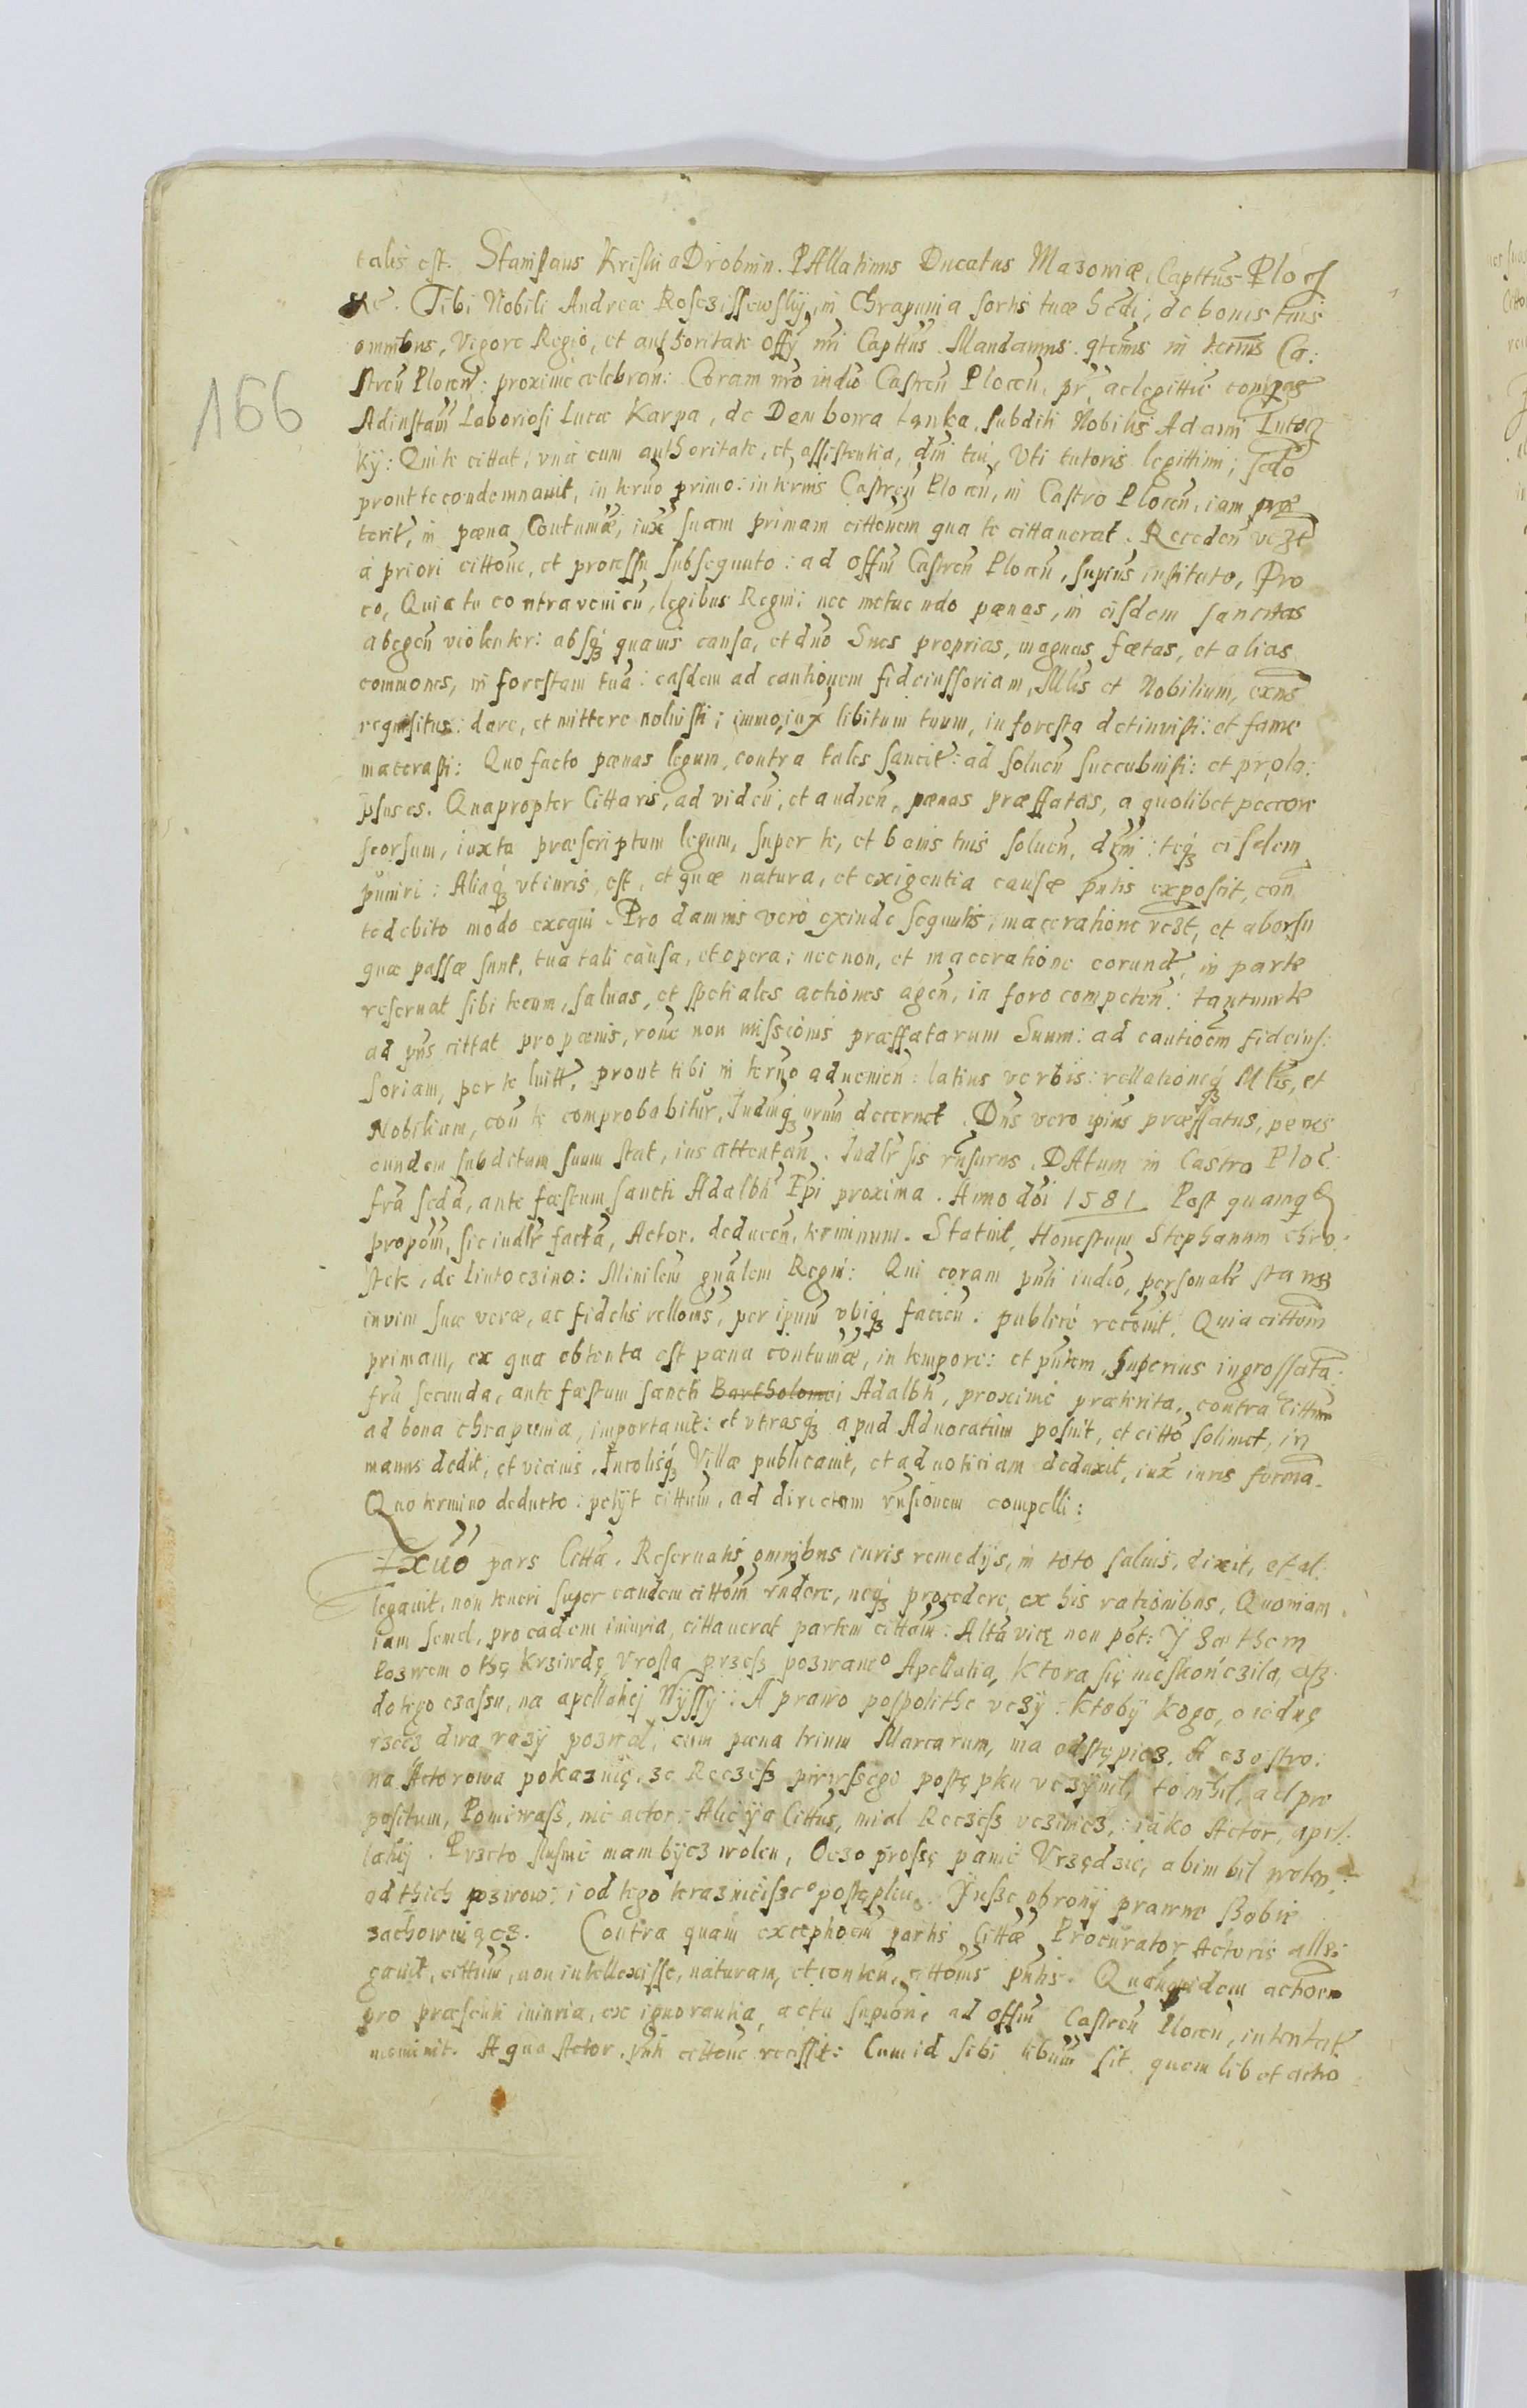 talis est. Stanislaus Kriski a Drobnin. PAllatinus Ducatus Mazoniæ, Capttūs Ploc
Tibi Nobili Andreæ Roscziszewskij, in Chrapunia sortis tuæ hēdi, de bonis tuis
omnibus, Vigore Regio, et authoritate offÿ nri Capttūs. Mandamus. qtenus in termīs Ca:
streū Plocen̄: proxime celebran: Coram nro iudio Castren̄ Plocen̄, pr, ac legittie compas
Ad instam̄ Laboriosi Lucæ Karpa, de Dembowa Lanka, subditi Nobilis Adami Lutoc
kÿ: Qui te cittat, vna cum authoritate, et assistentia, dm̄ tui, Vti tutoris legittimi, sedo
prout te condemnauit, in termo primo: in termis Castren̄ Plocen̄, in Castro Plocen̄, iam præ
terit, in pæna Contumæ, iux suam primam cittonem qua te cittauerat. Receden̄ vezt
á priori cittone, et processu subsequuto: ad offm̄ Castren̄ Plocen̄, supius instituto, Pro
eo, Quia tu contravenien̄, legibus Regni: nec metuendo pænas, in eisdem sancitas
abegen̄ violenter: absqȝ quauis causa, et duo Sues proprias, magnas fætas, et alias
commones, in forestam tuā: easdem ad cautionem fideiussoriam, Mlis et Nobilium, exns
requisitus: dare, et mittere noluisti; immo, iux libitum tuum, in foresta detinuisti: et fame
macerasti: Quo facto pænas legum, contra tales sancit: ad soluen̄ succubuisti: et prola:
psus es. Quapropter Cittaris, ad viden̄, et audien̄, pænas præffatas, a quolibet peccore
seorsum, iuxta præscriptum legum, super te, et bonis tuis soluen̄, dm̄: teqȝ eisdem
puniri: Aliaqȝ vt iuris est, et quæ natura, et exigentia causæ pn̄tis exposcit, con
te debito modo exequi. Pro damnis veró exinde sequutis, maceratione vezt, et aborsu
quæ passæ sunt, tua tali causa, et opera: necnon, et maceratione eorund, in parte
reseruat sibi tecum, saluas, et spetiales actiones agen̄, in foro competen̄: tantum te
ad pn̄s cittat pro pænis, rōne non missionis præffatarum Suum: ad cautioem̄ fideius:
soriam, per te luitt, prout tibi in termo aduenien̄: latius verbis: rellationeqȝ Mlis, et
Nobilium, cou te comprobabitur, Iudiuqȝ urum decernet. Dn̄s vero ipius præffatus, penes
eundem subditum suum stat, ius attentan̄. Iudlr sis rn̄surus. DAtum in Castro Ploc̄:
fra scda, ante fæstum sancti Adalbti Epi proxima. Anno dōi 1581 Post quamqȝ
propom̄, sic iudlr factā, Actor. deducen̄, terminum. Statuit, Honestum Stephanum chro:
stek, de Liutoczino: Minilem gn̄alem Regni: Qui coram pn̄ti iudio, personalr stans
in vim suæ veræ, ac fidelis rellōnis, per ipum vbiqȝ facien̄. publicé recōuit. Quia cittōm
primam, ex qua obtenta est pæna contumæ, in tempore: et pn̄tem, superius ingrossata
fra secunda, ante fæstum sancti Bartholomei Adalbti, proximé præterita. contra Cittum
ad bona chrapunia, importauit: et vtrasqȝ apud Aduocatum posuit, et citto solimet, in
manus dedit, et vicinis, Incolisqȝ Villæ publicauit, et ad noticiam deduxit, iux iuris formā.
Quo termino deducto: petÿt cittum̄, ad directam rn̄sionem compelli:
Exuo pars Citta. Reseruatis omnibus iuris remedÿs, in toto saluis, dixit, et al:
legauit, non teneri super eandem cittom̄ rn̄dere, neqȝ procedere, ex his rationibus, Quoniam
iam semel, pro eadem iniuria, cittauerat partem cittam̄: Altā vicę non pōt: Ÿ Za them
Pozwem o thę krziwdę Vrosla przess pozwane° Apellatia, Ktora się nieskończila, asz
do tego czassu, na apellatiej Wÿssÿ: A prawo pospolithe vczÿ: ktobÿ kogo, o iednę
rzecz dwa razÿ pozwal, cum pæna trium Marcarum, ma odstępicz. A czostro:
na Actorowa pokazuię, ze Reczess pirwssego postępku vczÿnil, to nihil, ad pro
positum, Poniewass, nie actor: Alie ÿa Cittus, mial Reczess vczinicz,: iako Actor, apel:
latiÿ. Przeto slusnie mam bÿcz wolen, Oczo prosse panie Vrzędzie, abim bil wolen
od thich pozwow: i od tego terazniciszc° postępku. Insze obronÿ prawne Sobie
zachowuiącz. Contra quam exceptioem̄ partis Cittæ Procurator Actoris alle:
gauit, cittum̄, non intellexisse, naturam, et conten̄, cittōnis pn̄tis. Quandoquidem actioem
pro præsenti iniuria, ex ignorantia, actu supiōri ad offm̄ Castren̄ Plocen̄, intentat
meminit. A qua Actor, pn̄ti cittōne recessit: Cum id sibi libum̄ sit quem libet actio
166